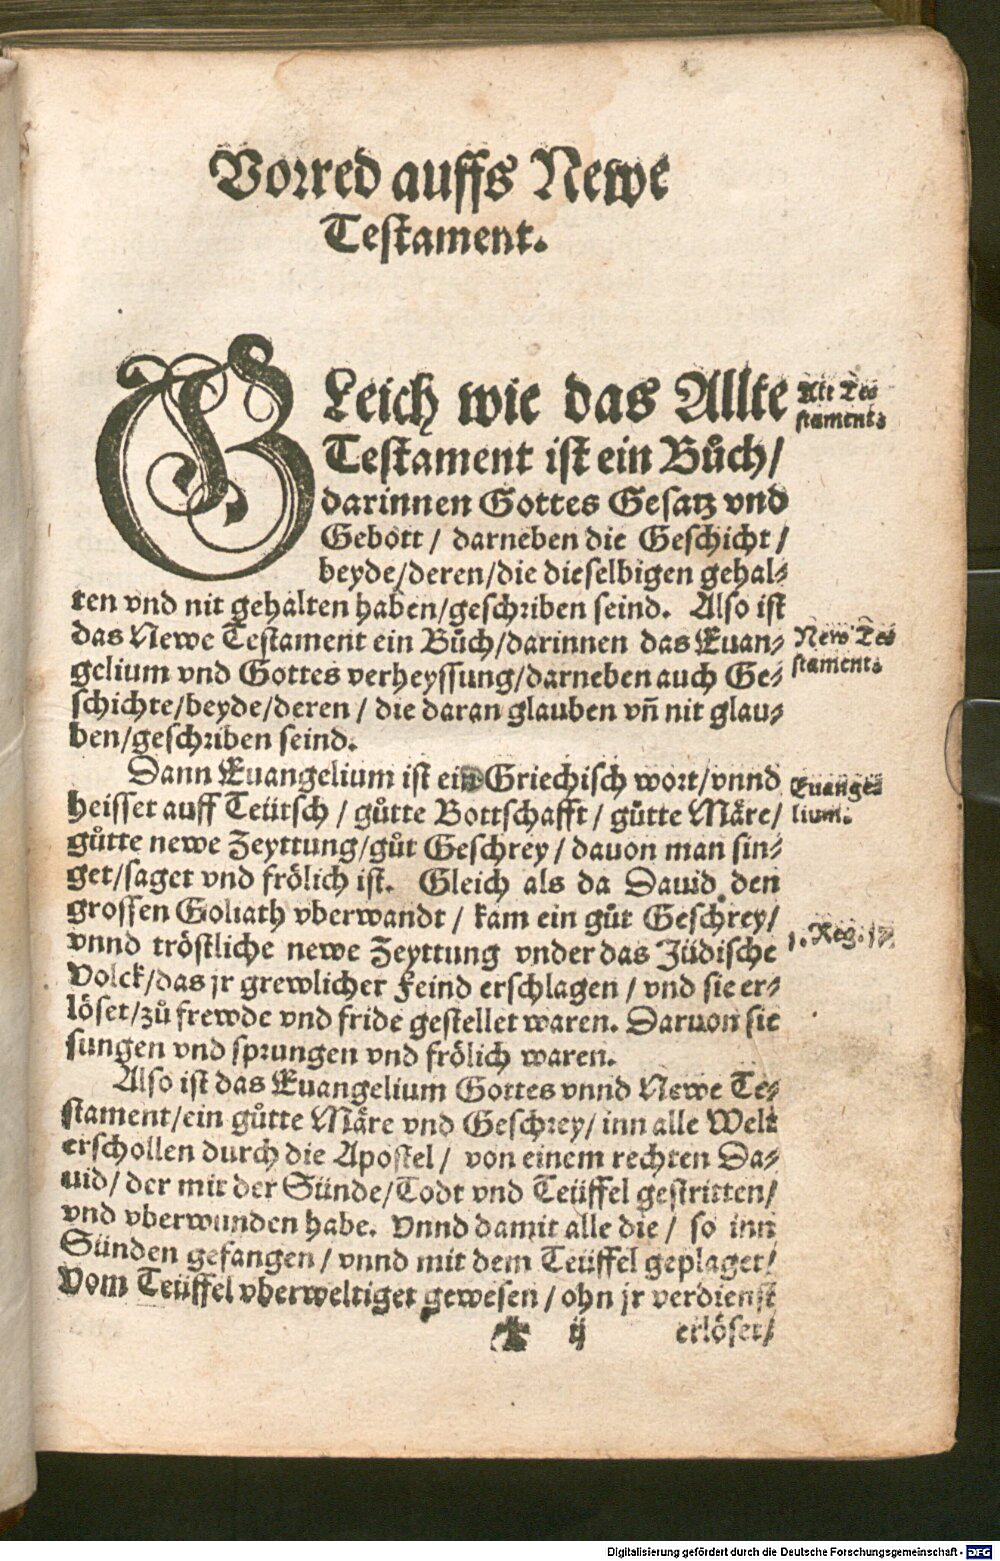 Vorred auffs Newe
Testament.
GLeich wie das Allte
Testament ist ein Bůch/
darinnen Gottes Gesatz vnd
Gebott / darneben die Geschicht /
beyde/deren/die dieselbigen gehal⸗
ten vnd nit gehalten haben/geschriben seind. Also ist
das Newe Testament ein Bůch/darinnen das Euan⸗
gelium vnd Gottes verheyssung/darneben auch Ge⸗
schichte/beyde/deren / die daran glauben vñ nit glau⸗
ben/geschriben seind.
Dann Euangelium ist ein Griechisch wort/vnnd
heisset auff Teütsch / gůtte Bottschafft / gůtte Märe/
gůtte newe Zeyttung/gůt Geschrey / dauon man sin⸗
get/saget vnd frölich ist. Gleich als da Dauid den
grossen Goliath vberwandt / kam ein gůt Geschrey/
vnnd tröstliche newe Zeyttung vnder das Jüdische
Volck/das jr grewlicher Feind erschlagen / vnd sie er⸗
löset/zů frewde vnd fride gestellet waren. Daruon sie
sungen vnd sprungen vnd frölich waren.
Also ist das Euangelium Gottes vnnd Newe Te⸗
stament/ein gůtte Märe vnd Geschrey/ inn alle Welt
erschollen durch die Apostel / von einem rechten Da⸗
uid/ der mit der Sünde/Todt vnd Teüffel gestritten/
vnd vberwunden habe. Vnnd damit alle die / so inn
Sünden gefangen / vnnd mit dem Teüffel geplaget/
Vom Teüffel vberweltiget gewesen / ohn jr verdienst
ij erlöset/
Alt Tes
stament.
New Tes
stament.
Euange⸗
lium.
1. Reg. 17
Digitalisierung gefördert durch die Deutsche Forschungsgemeinschaft - DFG